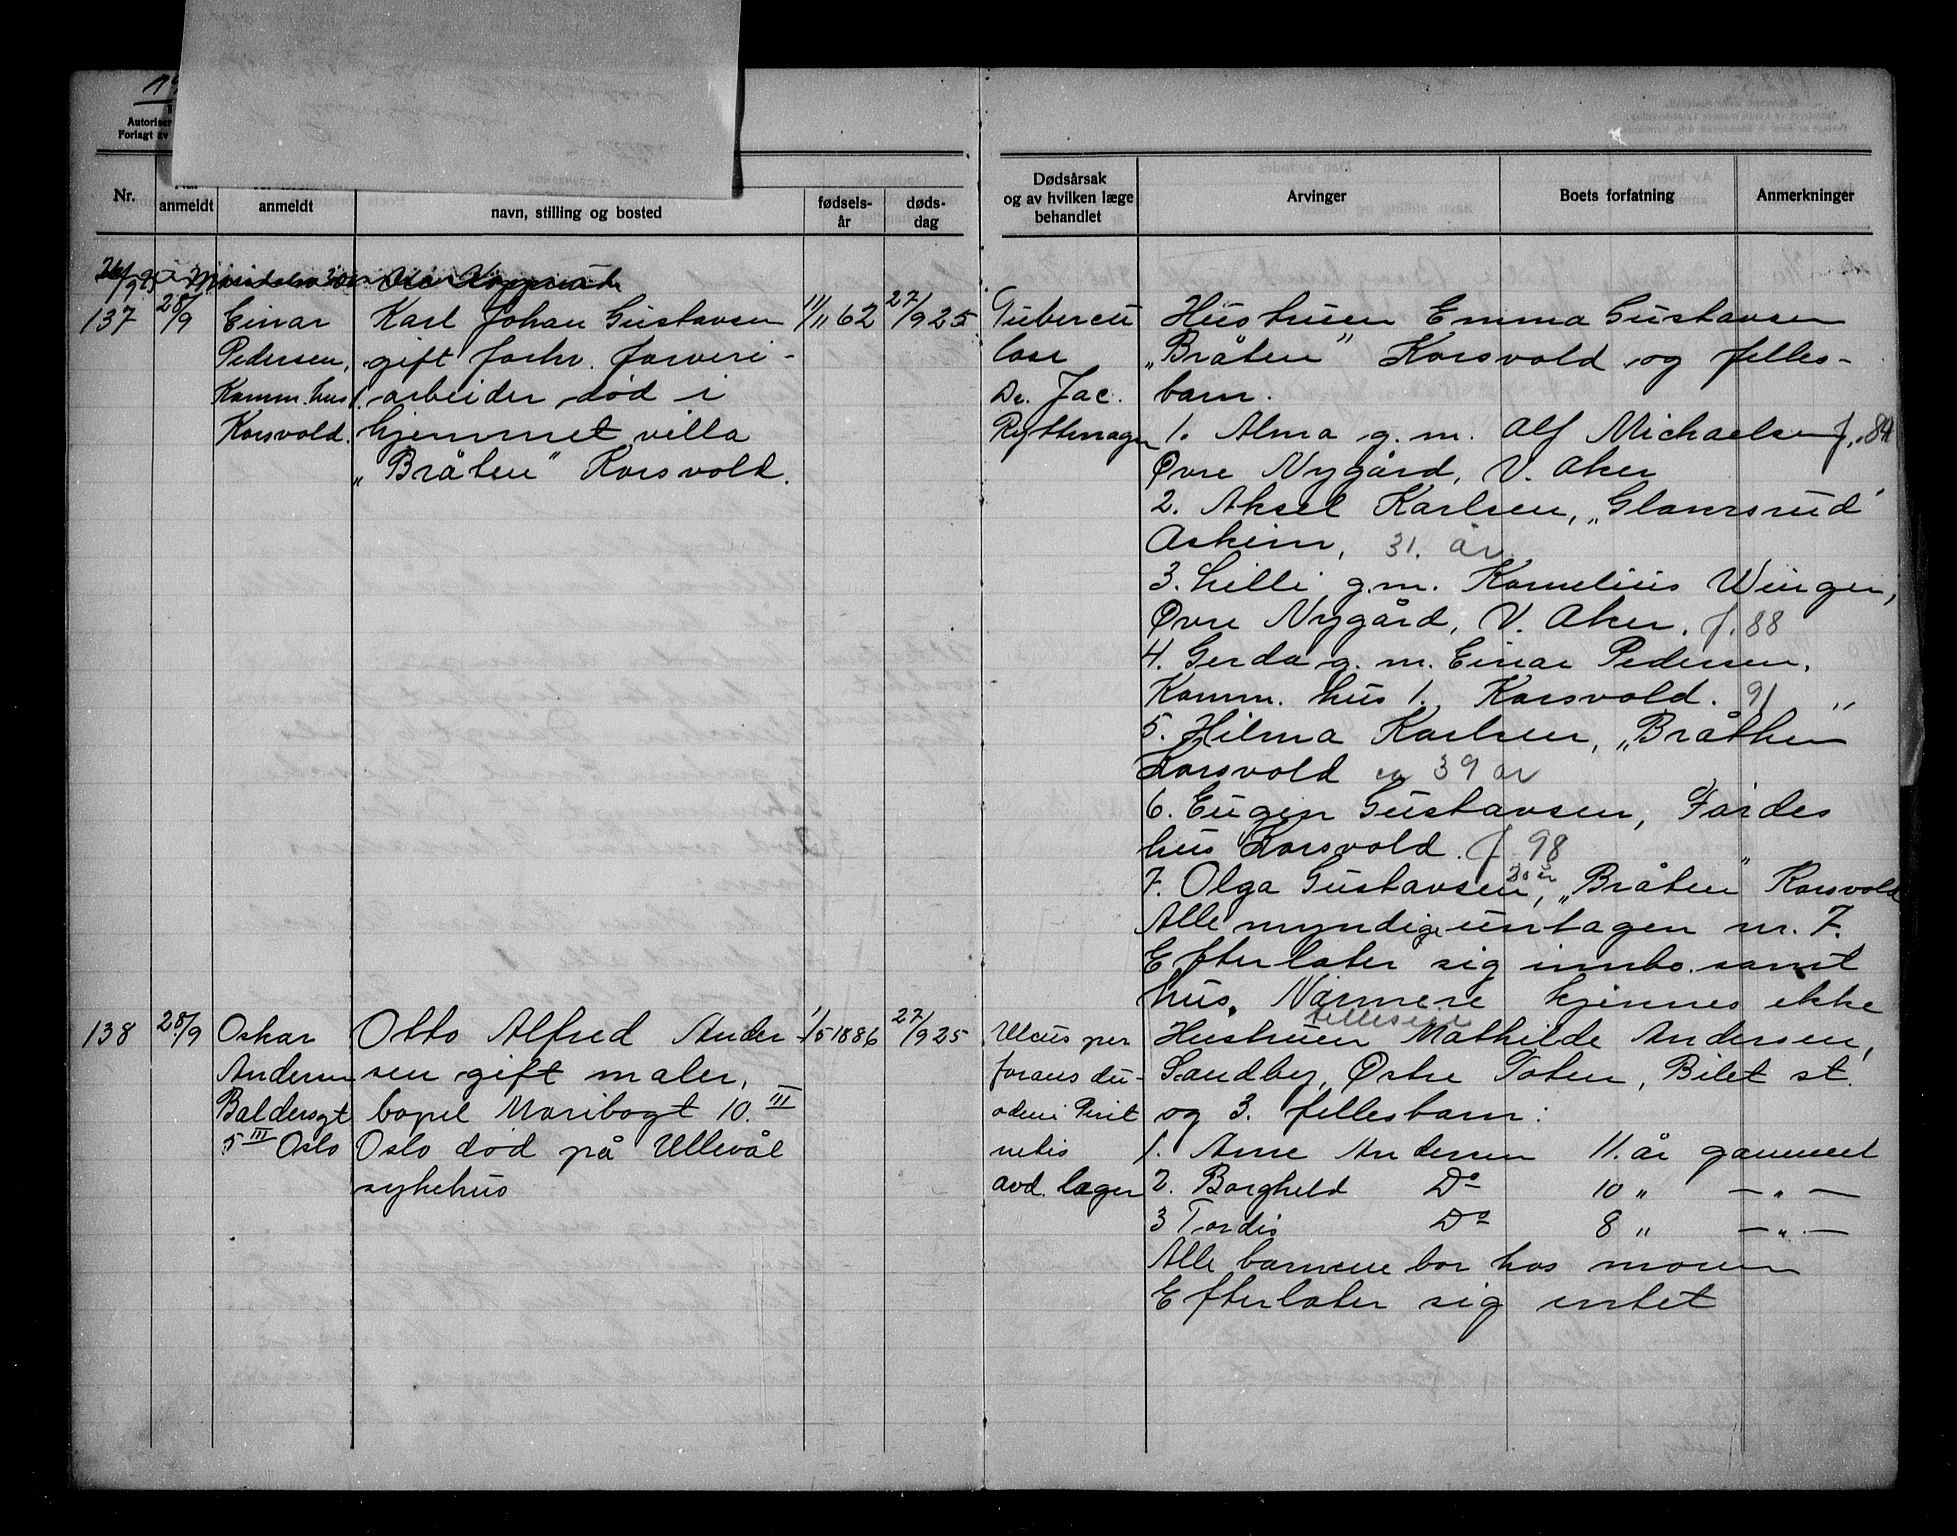 19
Autoriser
Forlagt av
Nr.
anmeldt
anmeldt
navn, stilling og bosted
fødsels-
år
døds-
dag
Dødsårsak
og av hvilken læge
behandlet
Arvinger
Boets forfatning
Anmerkninger
26/9 25
137
28/9
Einar
Pedersen,
Komm. hus 1.
Korsvold.
Karl Johan Gustavsen
gift forhv. farveri-
arbeider død i
hjemmet villa
„Bråten” Korsvold.
11/11 62
27/9 25
Tubercu
lose
Dr. Jac.
Ryttmager
Hustruen Emma Gustavsen
„Bråten” Korsvold og felles-
barn.
1. Alma g. m. Alf Michaelsen f. 84
Øvre Nygård, V. Aker
2. Aksel Karlsen, „Glamsrud”
Askim, 31. år
3. Lilli g.m. Kornelius Winger,
Øvre Nygård, V. Aker. f. 88
4. Gerda g. m. Einar Pedersen,
Komm. hus 1. Korsvold. 91 „
5. Hilma Karlsen, „Bråthen
Korsvold ca 39 år
6. Eugen Gustavsen, Fardes
hus Korsvold. f 98
7. Olga Gustavsen, 20 år „Bråten” Korsvold
Alle myndige untagen nr. 7.
Efterlater sig innbo samt
hus. Nærmere kjennes ikke
138
28/9
Oskar
Andersen
Baldersgt
5 III Oslo
Otto Alfred Ander
sen gift maler,
bopel Maribogt 10. III
Oslo død på Ullevål
sykehus
1/5 1886
27/9 25
Ulcus per
forans du-
odeni Perit
netis
avd. læger
felleseie
Hustruen Mathilde Andersen,
Sandby, Østre Toten, Bilet st.
og 3. fellesbarn:
1. Arne Andersen 11. år gammel
2. Borghild Do 10 „ — „ —
3 Tordis Do 8 „ — „ —
Alle barnene bor hos moren
Efterlater sig intet